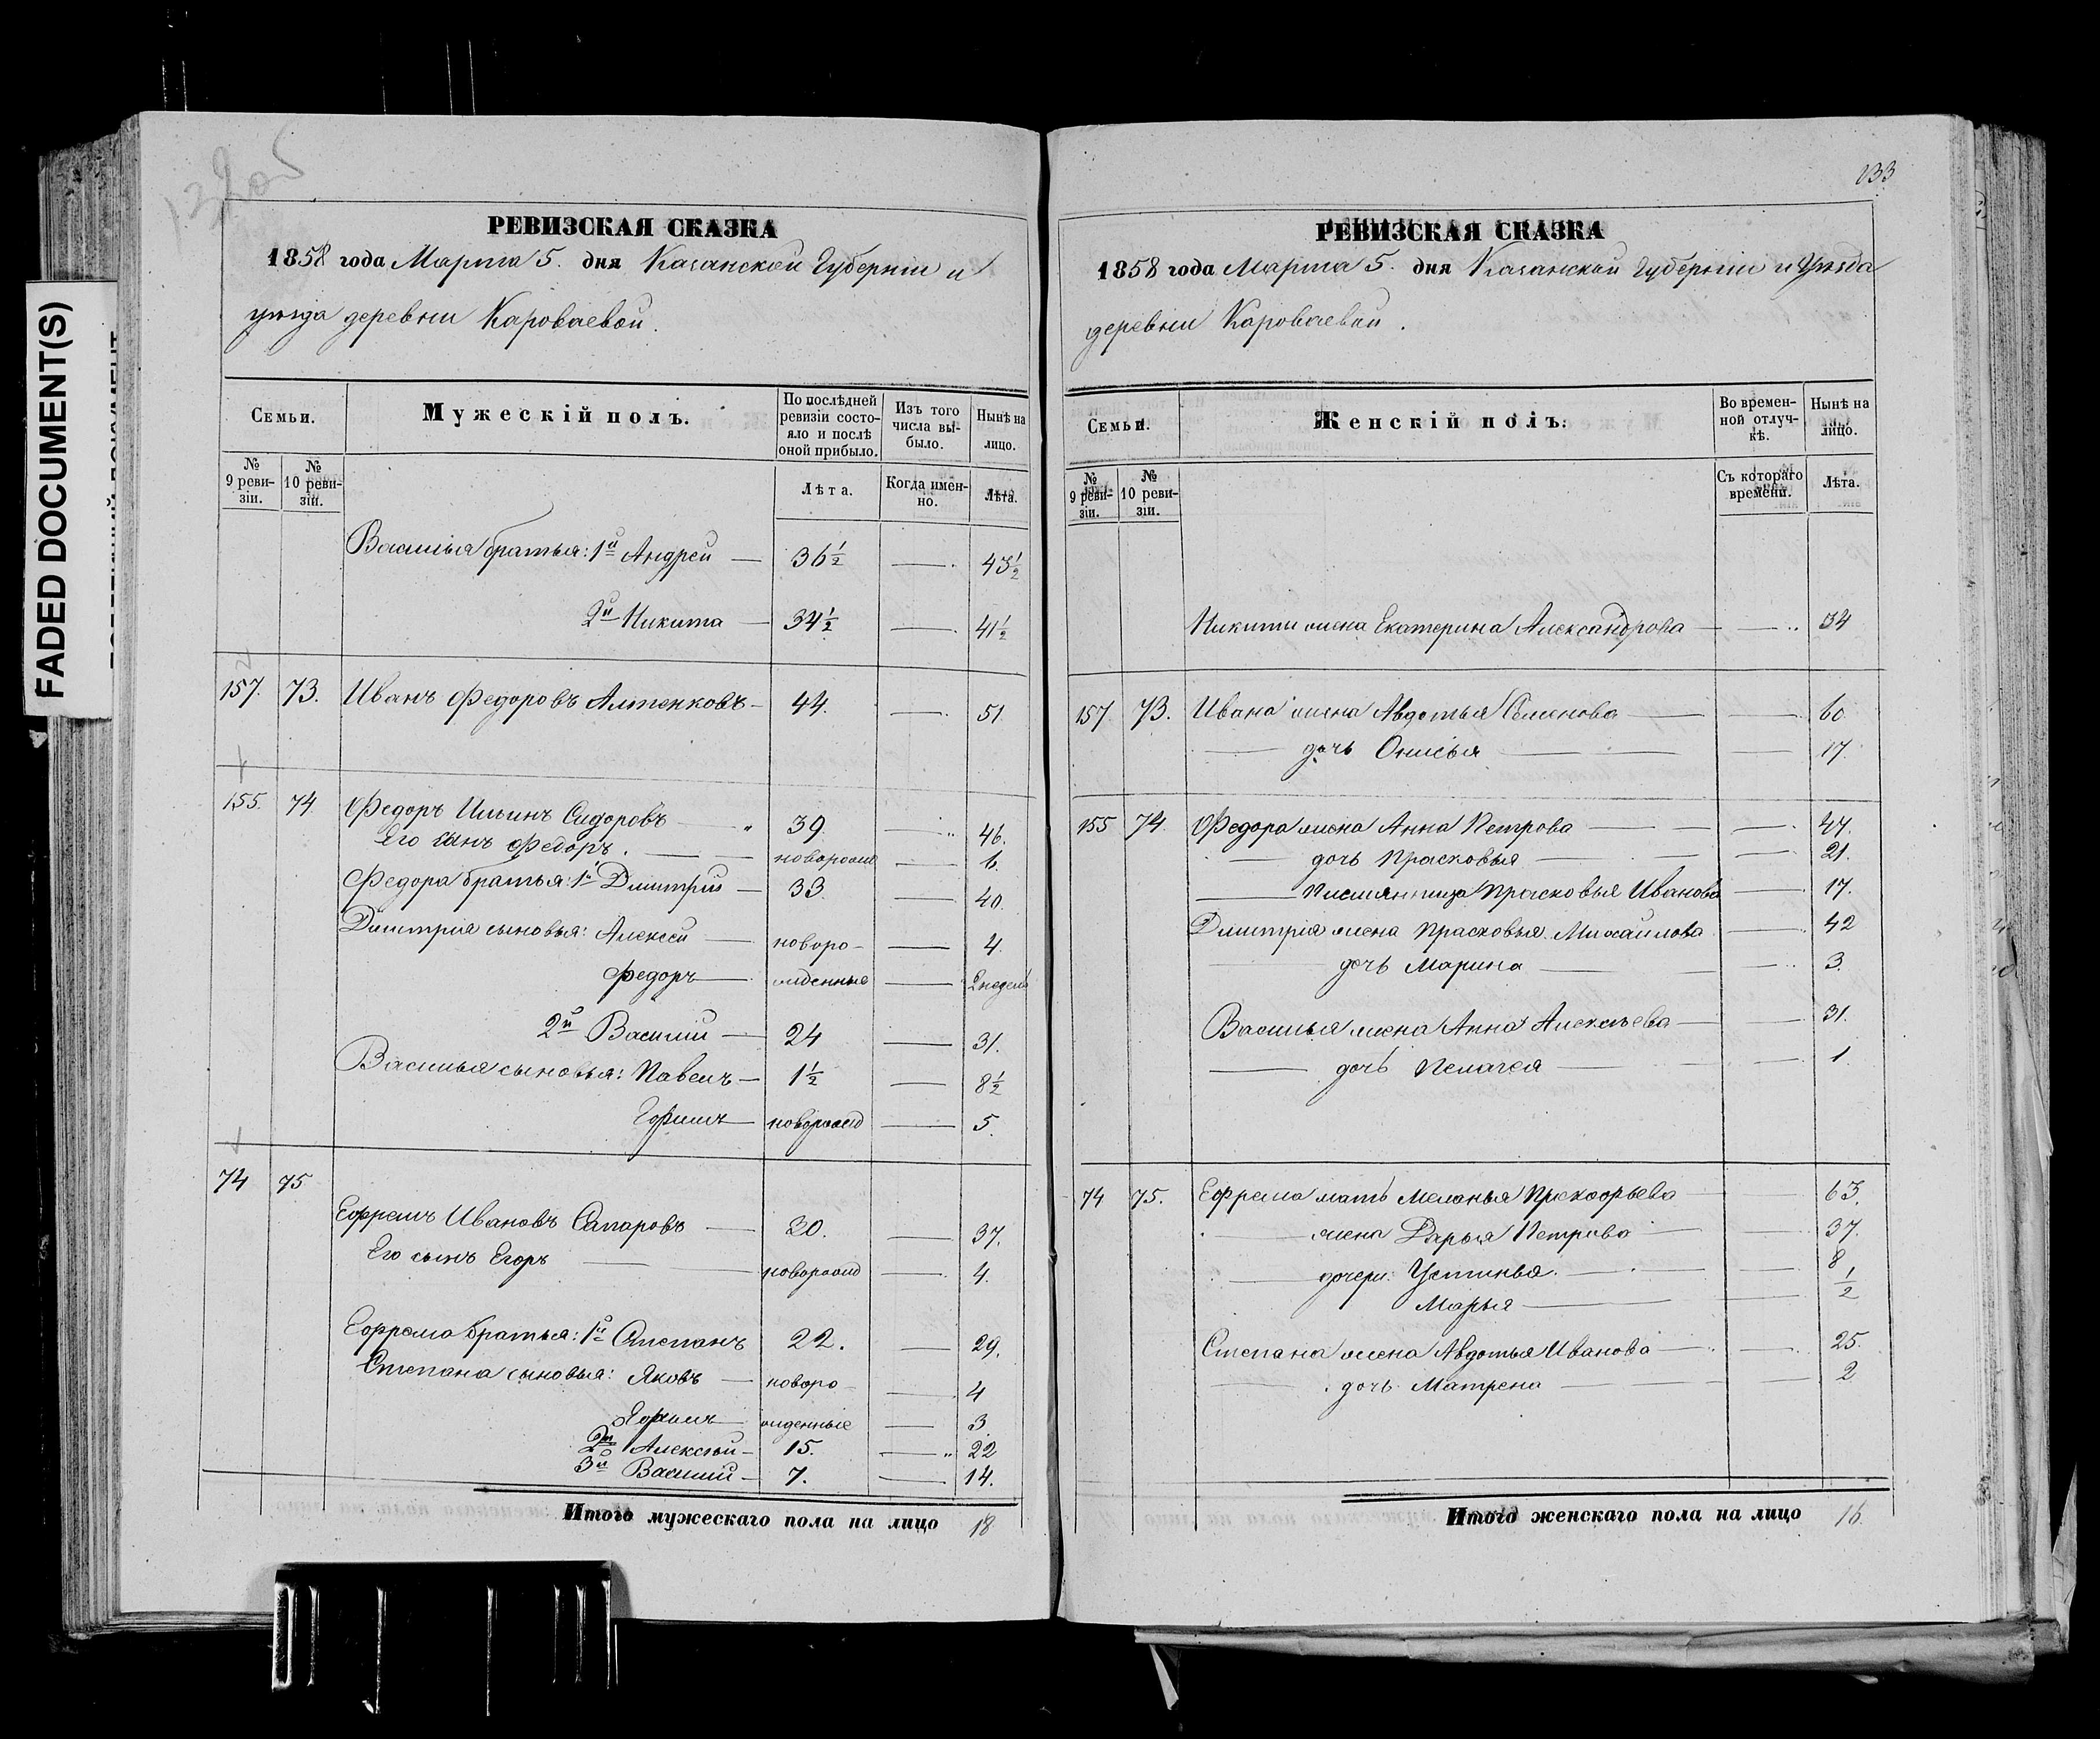 FADED DOCUMENT(S)
205
РЕВИЗСКАЯ СКАЗКА
1858 года Марта 5. дня Казанской Губерніи и
уѣзда деревни Короваевой.
Семьи.
Мужескій полъ.
По послѣдней ревизіи состояло и послѣ оной прибыло.
Изъ того числа выбыло.
Нынѣ на лицо.
№ 9 ревизіи.
№ 10 ревизіи.
Лѣта.
Когда именно.
Лѣта.
Василья братья: 1й Андрей — 36½ — 43½
2й Никита — 34½ — 41½
157. 73. Иванъ Федоровъ — 44. — 51
155. 74. Федоръ Ильинъ Сидоровъ — 39. — 46.
Его сынъ Федоръ. — новорожд — 6.
Федора братья: 1й Дмитрій — 33 — 40.
Дмитрія сыновья: Алексей — новоро- — 4.
Федоръ — жденные — 2 недель
2й Василій — 24 — 31.
Василья сыновья: Павелъ — 1½ — 8½
Ефимъ — новорожд — 5.
74 75
Ефремъ Ивановъ Сапаровъ — 30. — 37.
Его сынъ Егоръ — новорожд — 4.
Ефрема братья: 1й Степанъ 22. — 29.
Степана сыновья: Яковъ — новоро- — 4
Ефимъ — жденные — 3
2й Алексѣй — 15. — 22
3й Василій — 7. — 14.
Итого мужескаго пола на лицо 18
133
РЕВИЗСКАЯ СКАЗКА
1858 года Марта 5. дня Казанской Губерніи и Уѣзда
деревни Короваевой.
Семьи.
Женскій полъ.
Во временной отлучкѣ.
Нынѣ на лицо.
№ 9 ревизіи.
№ 10 ревизіи.
Съ котораго времени.
Лѣта.
Никиты жена Екатерина Александрова — 34
157. 73. Ивана жена Авдотья Семенова — 60
— дочь Онисья — 17.
155 74. Федора жена Анна Петрова — 47.
— дочь Прасковья — 21.
— племянница Прасковья Иванова — 17.
Дмитрія жена Прасковья Михайлова — 42
— дочь Марина — 3.
Василья жена Анна Алексѣева — 31.
— дочь Пелагея — 1.
74 75. Ефрема мать Меланья Прокофьева 63.
— жена Дарья Петрова — 37.
— дочери: Устинья. — 8
Марья — ½
Степана жена Авдотья Иванова — 25.
— дочь Матрена — 2
Итого женскаго пола на лицо 16.